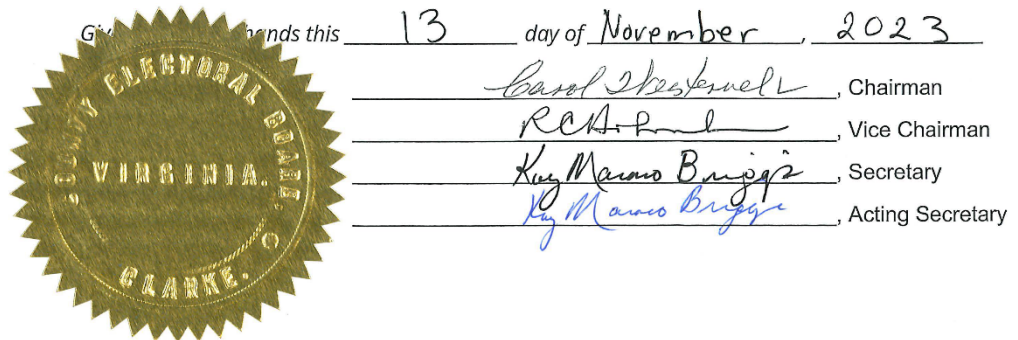 hands this 13 day of November, 2023
Carol , Chairman
, Vice Chairman
Kay Marmo Briggs, Secretary
Kay Marmo Briggs, Acting Secretary
COUNTY ELECTORAL BOARD,
VIRGINIA.
CLARKE.